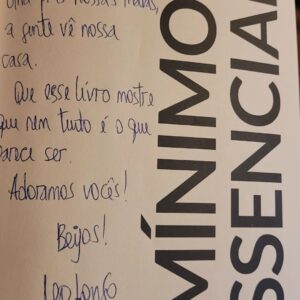 pras nossas malas,
a gente vê nossa
casa.
Que esse livro mostre
que nem tudo é o que
parece ser.
Adoramos vocês!
Beijos!
MÍNIMO
ESSENCIAL